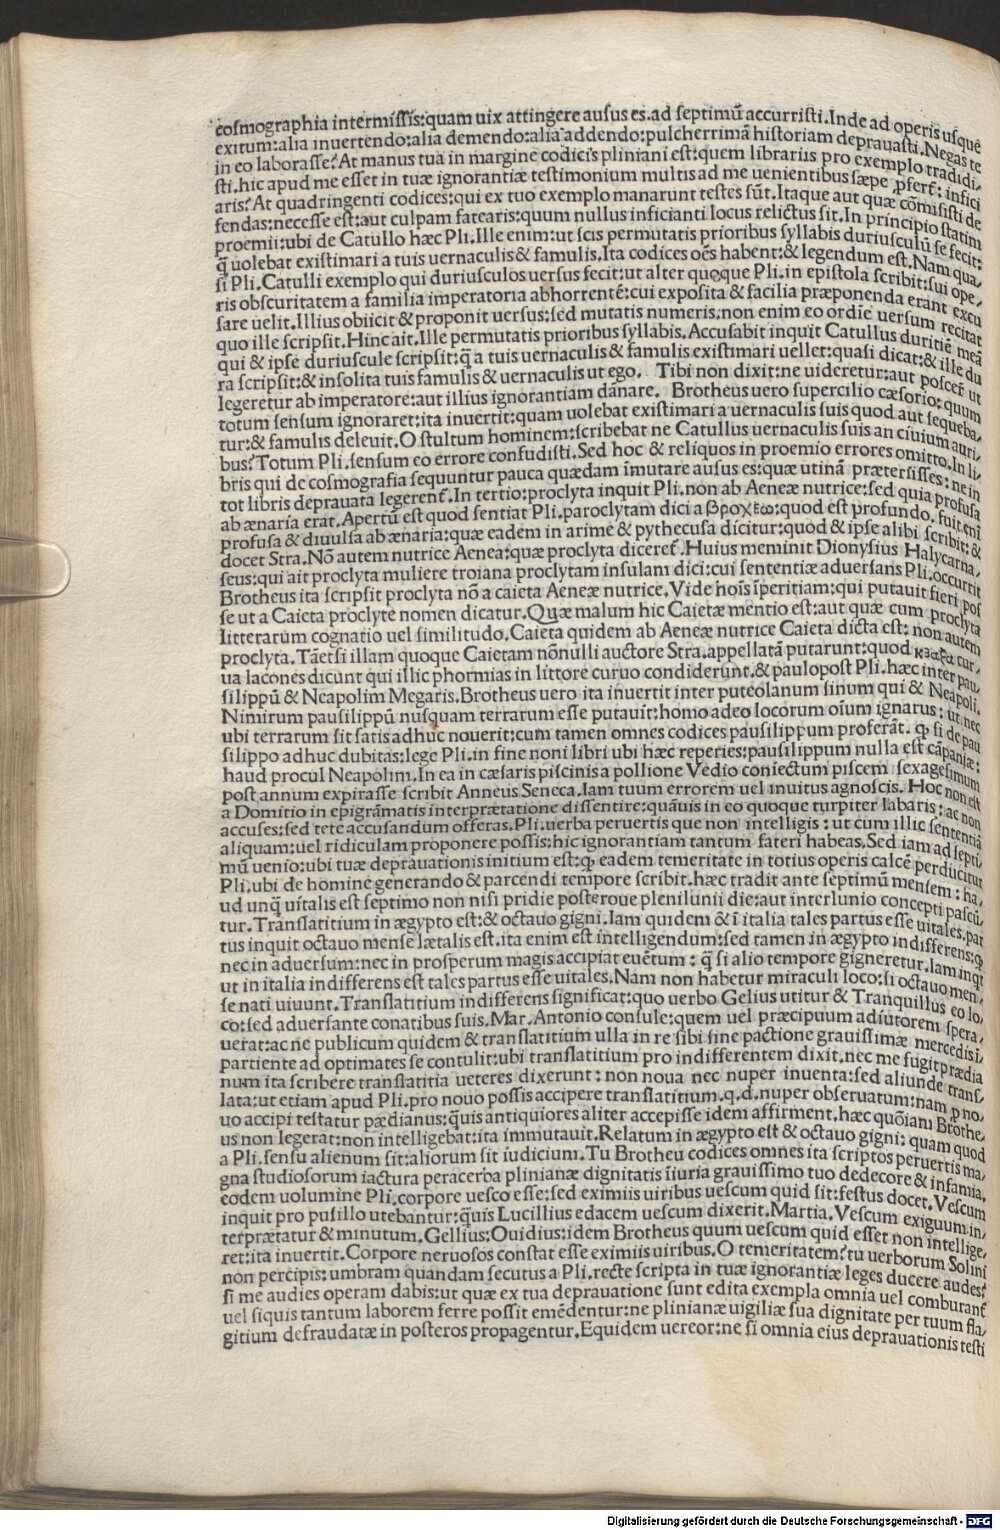 cosmographia intermissis:quam uix attingere ausus es.ad septimũ accurristi.Inde ad operis usque
exitum:alia inuertendo:alia demendo:alia addendo:pulcherrimã historiam deprauasti.Negas te
in eo laborasse?At manus tua in margine codicis pliniani est:quem librariis pro exemplo tradidi,
sti.hic apud me esset in tuæ ignorantiæ testimonium multis ad me uenientibus sæpe ꝓfert̃: infici
aris?At quadringenti codices:qui ex tuo exemplo manarunt testes sũt.Itaque aut quæ cõmisisti de
fendas:necesse est:aut culpam fatearis:quum nullus inficianti locus relictus sit.In principio statim
proemii:ubi de Catullo hæc Pli.Ille enim:ut scis permutatis prioribus syllabis duriusculũ se fecit:
q̃ uolebat existimari a tuis uernaculis & famulis.Ita codices oẽs habent:& legendum est.Nam qua,
si Pli.Catulli exemplo qui duriusculos uersus fecit:ut alter quoque Pli.in epistola scribit:sui ope,
ris obscuritatem a familia imperatoria abhorrentẽ:cui exposita & facilia præponenda erant excu
sare uelit.Illius obiicit & proponit uersus:sed mutatis numeris:non enim eo ordĩe uersum recitat
quo ille scripsit.Hinc ait.Ille permutatis prioribus syllabis.Accusabit inquit Catullus duritiẽ meã
qui & ipse duriuscule scripsit:q̃ a tuis uernaculis & famulis existimari uellet:quasi dicat:& ille du
ra scripsit:& insolita tuis famulis & uernaculis ut ego. Tibi non dixit:ne uideretur:aut poscer̃ ut
legeretur ab imperatore:aut illius ignorantiam dãnare. Brotheus uero supercilio cæsorio:quum
totum sensum ignoraret:ita inuertit:quam uolebat existimari a uernaculis suis quod aut sequeba,
tur:& famulis deleuit.O stultum hominem:scribebat ne Catullus uernaculis suis an ciuium auri,
bus?Totum Pli.sensum eo errore confudisti.Sed hoc & reliquos in proemio errores omitto.In li,
bris qui de cosmografia sequuntur pauca quædam ĩmutare ausus es:quæ utinã prætersisses:ne in
tot libris deprauata legerent̃.In tertio:proclyta inquit Pli.non ab Aeneæ nutrice:sed quia profusa
ab ænaria erat.Apertũ est quod sentiat Pli.paroclytam dici a βροχεω:quod est profundo. fuit enĩ
profusa & diuulsa ab ænaria:quæ eadem in arime & pythecusa dicitur:quod & ipse alibi scribit:&
docet Stra.Nõ autem nutrice Aenea:quæ proclyta diceret̃.Huius meminit Dionysius Halycarna,
seus:qui ait proclyta muliere troiana proclytam insulam dici:cui sententiæ aduersans Pli.occurrit
Brotheus ita scripsit proclyta nõ a caieta Aeneæ nutrice.Vide hoĩs ĩperitiam:qui putauit fieri pos
se ut a Caieta proclyte nomen dicatur.Quæ malum hic Caietæ mentio est:aut quæ cum proclyta
litterarum cognatio uel similitudo.Caieta quidem ab Aeneæ nutrice Caieta dicta est: non autem
proclyta.Tãetsi illam quoque Caietam nõnulli auctore Stra.appellatã putarunt:quod καιαξα cur,
ua lacones dicunt qui illic phormias in littore curuo condiderunt.& paulopost Pli.hæc inter pau,
silippũ & Neapolim Megaris.Brotheus uero ita inuertit inter puteolanum sinum qui & Neapoli.
Nimirum pausilippũ nusquam terrarum esse putauit:homo adeo locorum oĩum ignarus: ut nec
ubi terrarum sit satis adhuc nouerit:cum tamen omnes codices pausilippum proferãt. ꝙ si de pau
silippo adhuc dubitas:lege Pli.in fine noni libri ubi hæc reperies:pausilippum nulla est cãpaniæ:
haud procul Neapolim.In ea in cæsaris piscinis a pollione Vedio coniectum piscem sexagesimum
post annum expirasse scribit Anneus Seneca.Iam tuum errorem uel inuitus agnoscis. Hoc non est
a Domitio in epigrãmatis interprætatione dissentire:quãuis in eo quoque turpiter labaris: ac non
accuses:sed tete accusandum offeras.Pli.uerba peruertis que non intelligis: ut cum illic sententiã
aliquam:uel ridiculam proponere possis:hic ignorantiam tantum fateri habeas.Sed iam ad septi,
mũ uenio:ubi tuæ deprauationis initium est:ꝙ eadem temeritate in totius operis calcẽ perducitur
Pli.ubi de homine generando & parcendi tempore scribit.hæc tradit ante septimũ mensem: ha,
ud unq̃ uitalis est septimo non nisi pridie posteroue plenilunii die:aut interlunio concepti pascũ,
tur.Translatitium in ægypto est:& octauo gigni.Iam quidem & ĩ italia tales partus esse uitales.par
tus inquit octauo mense lætalis est.ita enim est intelligendum:sed tamen in ægypto indifferens:ꝙ
nec in aduersum:nec in prosperum magis accipiat euẽtum: q̃ si alio tempore gigneretur.Iam inqt
ut in italia indifferens est tales partus esse uitales.Nam non habetur miraculi loco:si octauo men,
se nati uiuunt.Translatitium indifferens significat:quo uerbo Gelius utitur & Tranquillus eo lo,
co:sed aduersante conatibus suis.Mar.Antonio consule:quem uel præcipuum adiutorem spera,
uerat:ac ne publicum quidem & translatitium ulla in re sibi sine pactione grauissimæ mercedis ĩ,
partiente ad optimates se contulit:ubi translatitium pro indifferentem dixit.nec me fugit prædia
num ita scribere translatitia ueteres dixerunt: non noua nec nuper inuenta:sed aliunde trans,
lata:ut etiam apud Pli.pro nouo possis accipere translatitium.q.d.nuper obseruatum:nam ꝓ no,
uo accipi testatur pædianus:q̃uis antiquiores aliter accepisse idem affirment.hæc quõiam Brothe,
us non legerat:non intelligebat:ita immutauit.Relatum in ægypto est & octauo gigni: quam quod
a Pli.sensu alienum sit:aliorum sit iudicium.Tu Brotheu codices omnes ita scriptos peruertis ma,
gna studiosorum iactura peracerba plinianæ dignitatis ĩiuria grauissimo tuo dedecore & infamia.
eodem uolumine Pli.corpore uesco esse:sed eximiis uiribus uescum quid sit:festus docet.Vescum
inquit pro pusillo utebantur:q̃uis Lucillius edacem uescum dixerit.Martia.Vescum exiguum in,
terprætatur & minutum.Gellius:Ouidius:idem Brotheus quum uescum quid esset non intellige,
ret:ita inuertit.Corpore neruosos constat esse eximiis uiribus.O temeritatem?tu uerborum Solini
non percipis:umbram quandam secutus a Pli.recte scripta in tuæ ignorantiæ leges ducere audes?
si me audies operam dabis:ut quæ ex tua deprauatione sunt edita exempla omnia uel comburant̃
uel siquis tantum laborem ferre possit emẽdentur:ne plinianæ uigiliæ sua dignitate per tuum fla,
gitium defraudatæ in posteros propagentur.Equidem uereor:ne si omnia eius deprauationis testi
Digitalisierung gefördert durch die Deutsche Forschungsgemeinschaft - DFG